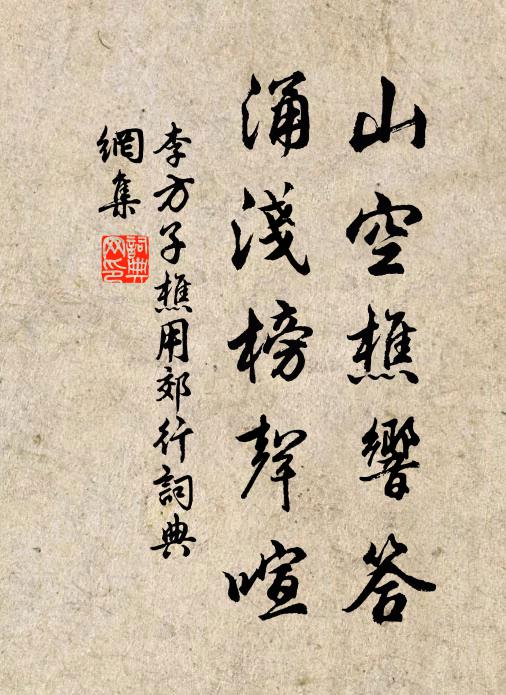 山空樵響答
涌淺榜聲喧
李方子樵用郊行詞典
網集
詞典
网印